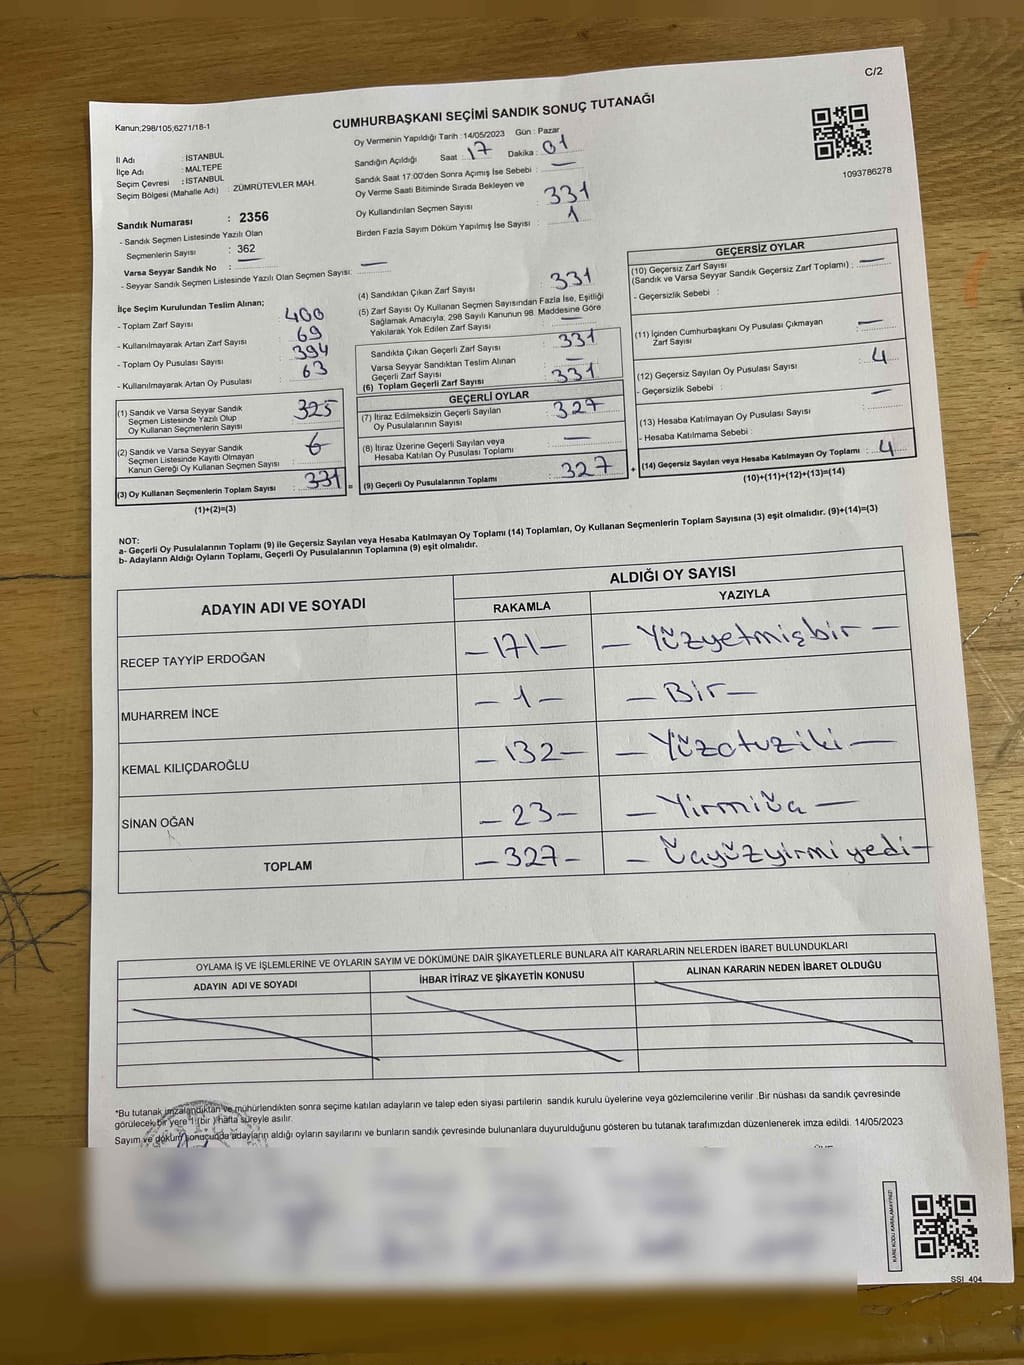 C/2
Kanun;298/105;6271/18-1
CUMHURBAŞKANI SEÇİMİ SANDIK SONUÇ TUTANAĞI
1093786278
İl Adı : İSTANBUL
İlçe Adı : MALTEPE
Seçim Çevresi : İSTANBUL
Seçim Bölgesi (Mahalle Adı) : ZÜMRÜTEVLER MAH.
Oy Vermenin Yapıldığı Tarih : 14/05/2023 Gün : Pazar
Sandığın Açıldığı Saat : 17 Dakika : 01
Sandık Saat 17.00'den Sonra Açımış İse Sebebi : —
Oy Verme Saati Bitiminde Sırada Bekleyen ve
Oy Kullandırılan Seçmen Sayısı : 331
Birden Fazla Sayım Döküm Yapılmış İse Sayısı : 1
Sandık Numarası : 2356
- Sandık Seçmen Listesinde Yazılı Olan
Seçmenlerin Sayısı : 362
Varsa Seyyar Sandık No : —
- Seyyar Sandık Seçmen Listesinde Yazılı Olan Seçmen Sayısı: —
İlçe Seçim Kurulundan Teslim Alınan;
- Toplam Zarf Sayısı : 400
- Kullanılmayarak Artan Zarf Sayısı : 69
- Toplam Oy Pusulası Sayısı : 394
- Kullanılmayarak Artan Oy Pusulası : 63
(1) Sandık ve Varsa Seyyar Sandık
Seçmen Listesinde Yazılı Olup
Oy Kullanan Seçmenlerin Sayısı : 325
(2) Sandık ve Varsa Seyyar Sandık
Seçmen Listesinde Kayıtlı Olmayan
Kanun Gereği Oy Kullanan Seçmen Sayısı : 6
(3) Oy Kullanan Seçmenlerin Toplam Sayısı : 331 =
(1)+(2)=(3)
(4) Sandıktan Çıkan Zarf Sayısı : 331
(5) Zarf Sayısı Oy Kullanan Seçmen Sayısından Fazla İse, Eşitliği
Sağlamak Amacıyla; 298 Sayılı Kanunun 98. Maddesine Göre
Yakılarak Yok Edilen Zarf Sayısı : —
Sandıkta Çıkan Geçerli Zarf Sayısı : 331
Varsa Seyyar Sandıktan Teslim Alınan
Geçerli Zarf Sayısı : —
(6) Toplam Geçerli Zarf Sayısı : 331
GEÇERLİ OYLAR
(7) İtiraz Edilmeksizin Geçerli Sayılan
Oy Pusulalarının Sayısı : 327
(8) İtiraz Üzerine Geçerli Sayılan veya
Hesaba Katılan Oy Pusulası Toplamı : —
(9) Geçerli Oy Pusulalarının Toplamı : 327 +
GEÇERSİZ OYLAR
(10) Geçersiz Zarf Sayısı
(Sandık ve Varsa Seyyar Sandık Geçersiz Zarf Toplamı) : —
- Geçersizlik Sebebi :
(11) İçinden Cumhurbaşkanı Oy Pusulası Çıkmayan
Zarf Sayısı : —
(12) Geçersiz Sayılan Oy Pusulası Sayısı : 4
- Geçersizlik Sebebi :
(13) Hesaba Katılmayan Oy Pusulası Sayısı : —
- Hesaba Katılmama Sebebi :
(14) Geçersiz Sayılan veya Hesaba Katılmayan Oy Toplamı : 4
(10)+(11)+(12)+(13)=(14)
NOT:
a- Geçerli Oy Pusulalarının Toplamı (9) ile Geçersiz Sayılan veya Hesaba Katılmayan Oy Toplamı (14) Toplamları, Oy Kullanan Seçmenlerin Toplam Sayısına (3) eşit olmalıdır. (9)+(14)=(3)
b- Adayların Aldığı Oyların Toplamı, Geçerli Oy Pusulalarının Toplamına (9) eşit olmalıdır.
ADAYIN ADI VE SOYADI
ALDIĞI OY SAYISI
RAKAMLA YAZIYLA
RECEP TAYYİP ERDOĞAN —171— — Yüzyetmişbir —
MUHARREM İNCE — 1 — — Bir —
KEMAL KILIÇDAROĞLU — 132 — — Yüzotuziki —
SİNAN OĞAN — 23 — — Yirmiüç —
TOPLAM — 327 — — Üçyüzyirmiyedi —
OYLAMA İŞ VE İŞLEMLERİNE VE OYLARIN SAYIM VE DÖKÜMÜNE DAİR ŞİKAYETLERLE BUNLARA AİT KARARLARIN NELERDEN İBARET BULUNDUKLARI
ADAYIN ADI VE SOYADI İHBAR İTİRAZ VE ŞİKAYETİN KONUSU ALINAN KARARIN NEDEN İBARET OLDUĞU
*Bu tutanak imzalandıktan ve mühürlendikten sonra seçime katılan adayların ve talep eden siyasi partilerin sandık kurulu üyelerine veya gözlemcilerine verilir .Bir nüshası da sandık çevresinde
görülecek bir yere 1 (bir ) hafta süreyle asılır.
Sayım ve döküm sonucunda adayların aldığı oyların sayılarını ve bunların sandık çevresinde bulunanlara duyurulduğunu gösteren bu tutanak tarafımızdan düzenlenerek imza edildi. 14/05/2023
KARE KODU KARALAMAYINIZ!
SSI_404